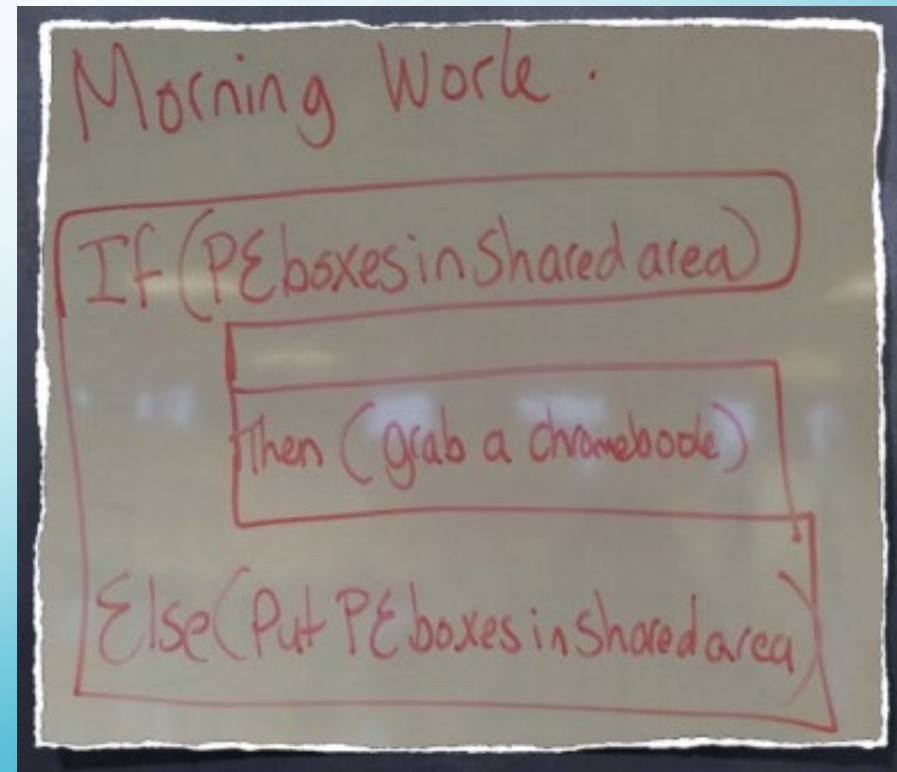 Morning Work.
If (PE boxes in Shared area)
Then (grab a chromebook)
Else (Put PE boxes in Shared area)